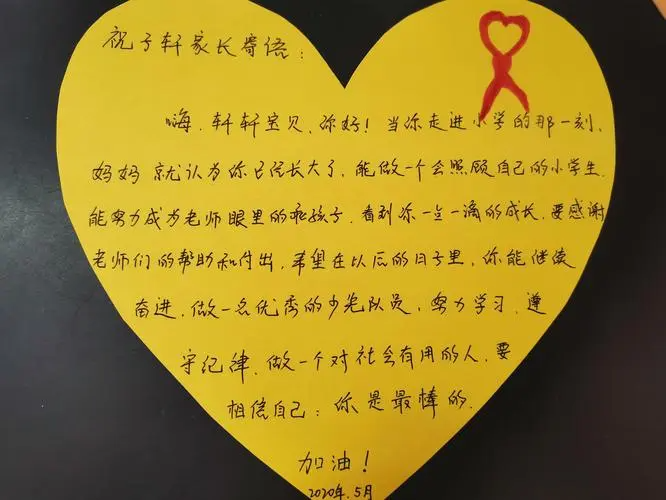 祝子轩家长寄语:
嗨、轩轩宝贝、你好!当你走进小学的那一刻、
妈妈就认为你已经长大了、能做一个会照顾自己的小学生、
能努力成为老师眼里的乖孩子、看到你一点一滴的成长、要感谢
老师们的帮助和付出、希望在以后的日子里、你能继续
奋进、做一名优秀的少先队员、努力学习、遵
守纪律、做一个对社会有用的人、要
相信自己:你是最棒的、
加油!
2020年.5月